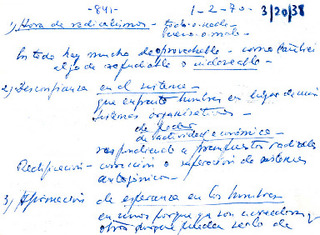 -841-
1-2-70-
3/20/38
1) Hora de radicalismos - todo o nada -
bueno o malo -
En todo hay mucho de aprovechable - como también
algo de refundible o
2) Desconfianza en el sistema -
que enfrenta hombres en lugar de unir
Sistemas organizativos -
de poder
de actividad económica -
respondiendo a radicales
Rectificación - corrección o superación de sistemas
antagónicos -
3) Afirmación de esperanza en los hombres
en unos porque ya son
otros porque pueden serlo de